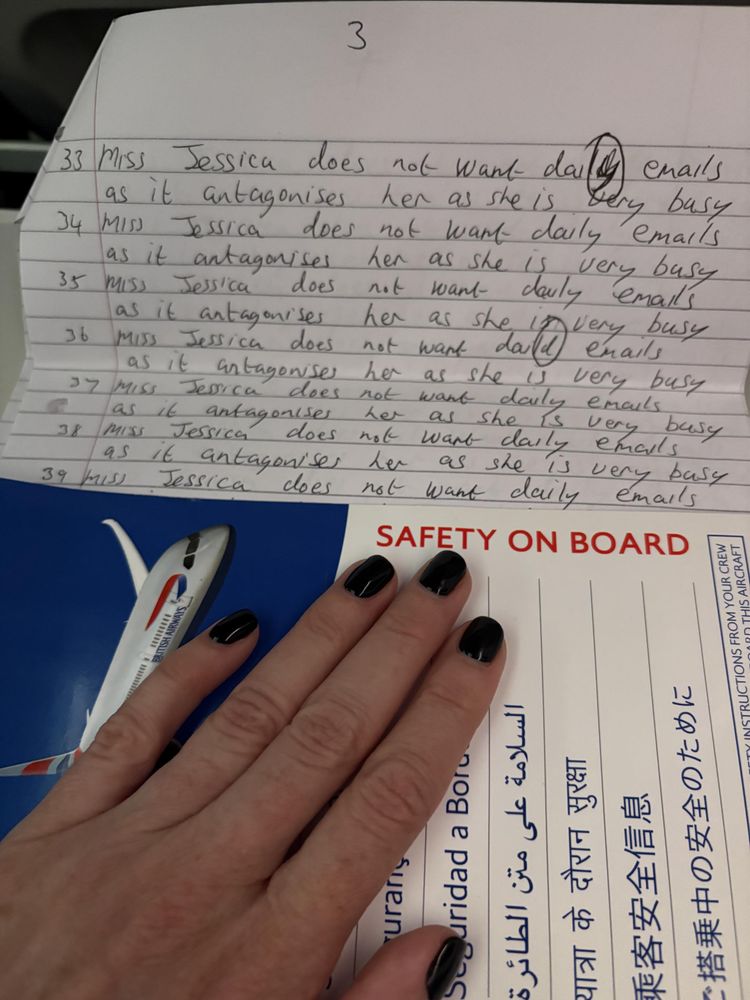 3
33 Miss Jessica does not want daily emails
as it antagonises her as she is very busy
34 Miss Jessica does not want daily emails
as it antagonises her as she is very busy
35 Miss Jessica does not want daily emails
as it antagonises her as she is very busy
36 Miss Jessica does not want daild emails
as it antagonises her as she is very busy
37 Miss Jessica does not want daily emails
as it antagonises her as she is very busy
38 Miss Jessica does not want daily emails
as it antagonises her as she is very busy
39 Miss Jessica does not want daily emails
SAFETY ON BOARD
BRITISH AIRWAYS
Seguridad a Bord
السلامة على متن الطائرة
यात्रा के दौरान सुरक्षा
乘客安全信息
ご搭乗中の安全のために
INSTRUCTIONS FROM YOUR CREW
THIS AIRCRAFT